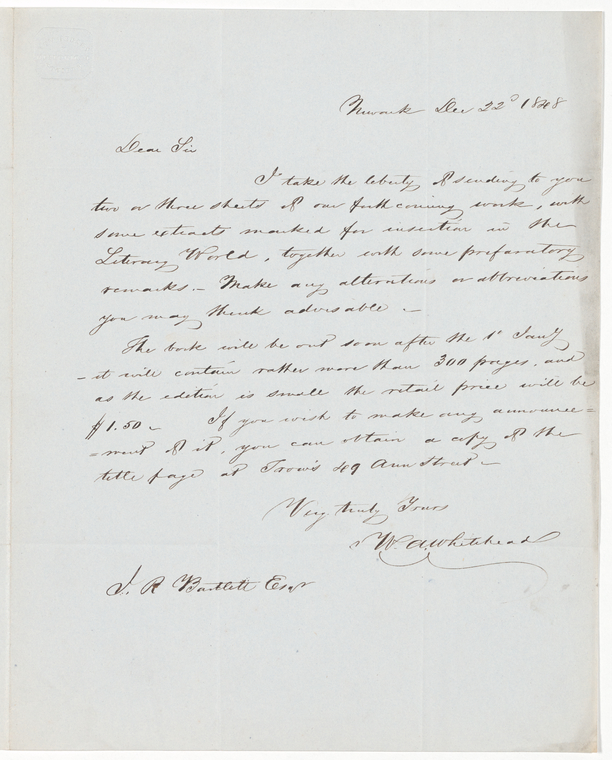 Newark Dec 22d 1848
Dear Sir
I take the liberty of sending to you
two or three sheets of our forthcoming work, with
some extracts marked for insertion in the
Literary World, together with some prefaratory
remarks. – Make any alterations or abbreviations
you may think advisable. –
The book will be out soon after the 1st Jany
– it will contain rather more than 300 pages, and
as the edition is small the retail price will be
$1.50 – If you wish to make any announce=
=ment of it, you can obtain a copy of the
title page at Trow's 49 Ann Street –
Very truly Yours
W. A. Whitehead
J. R Bartlett Esqr